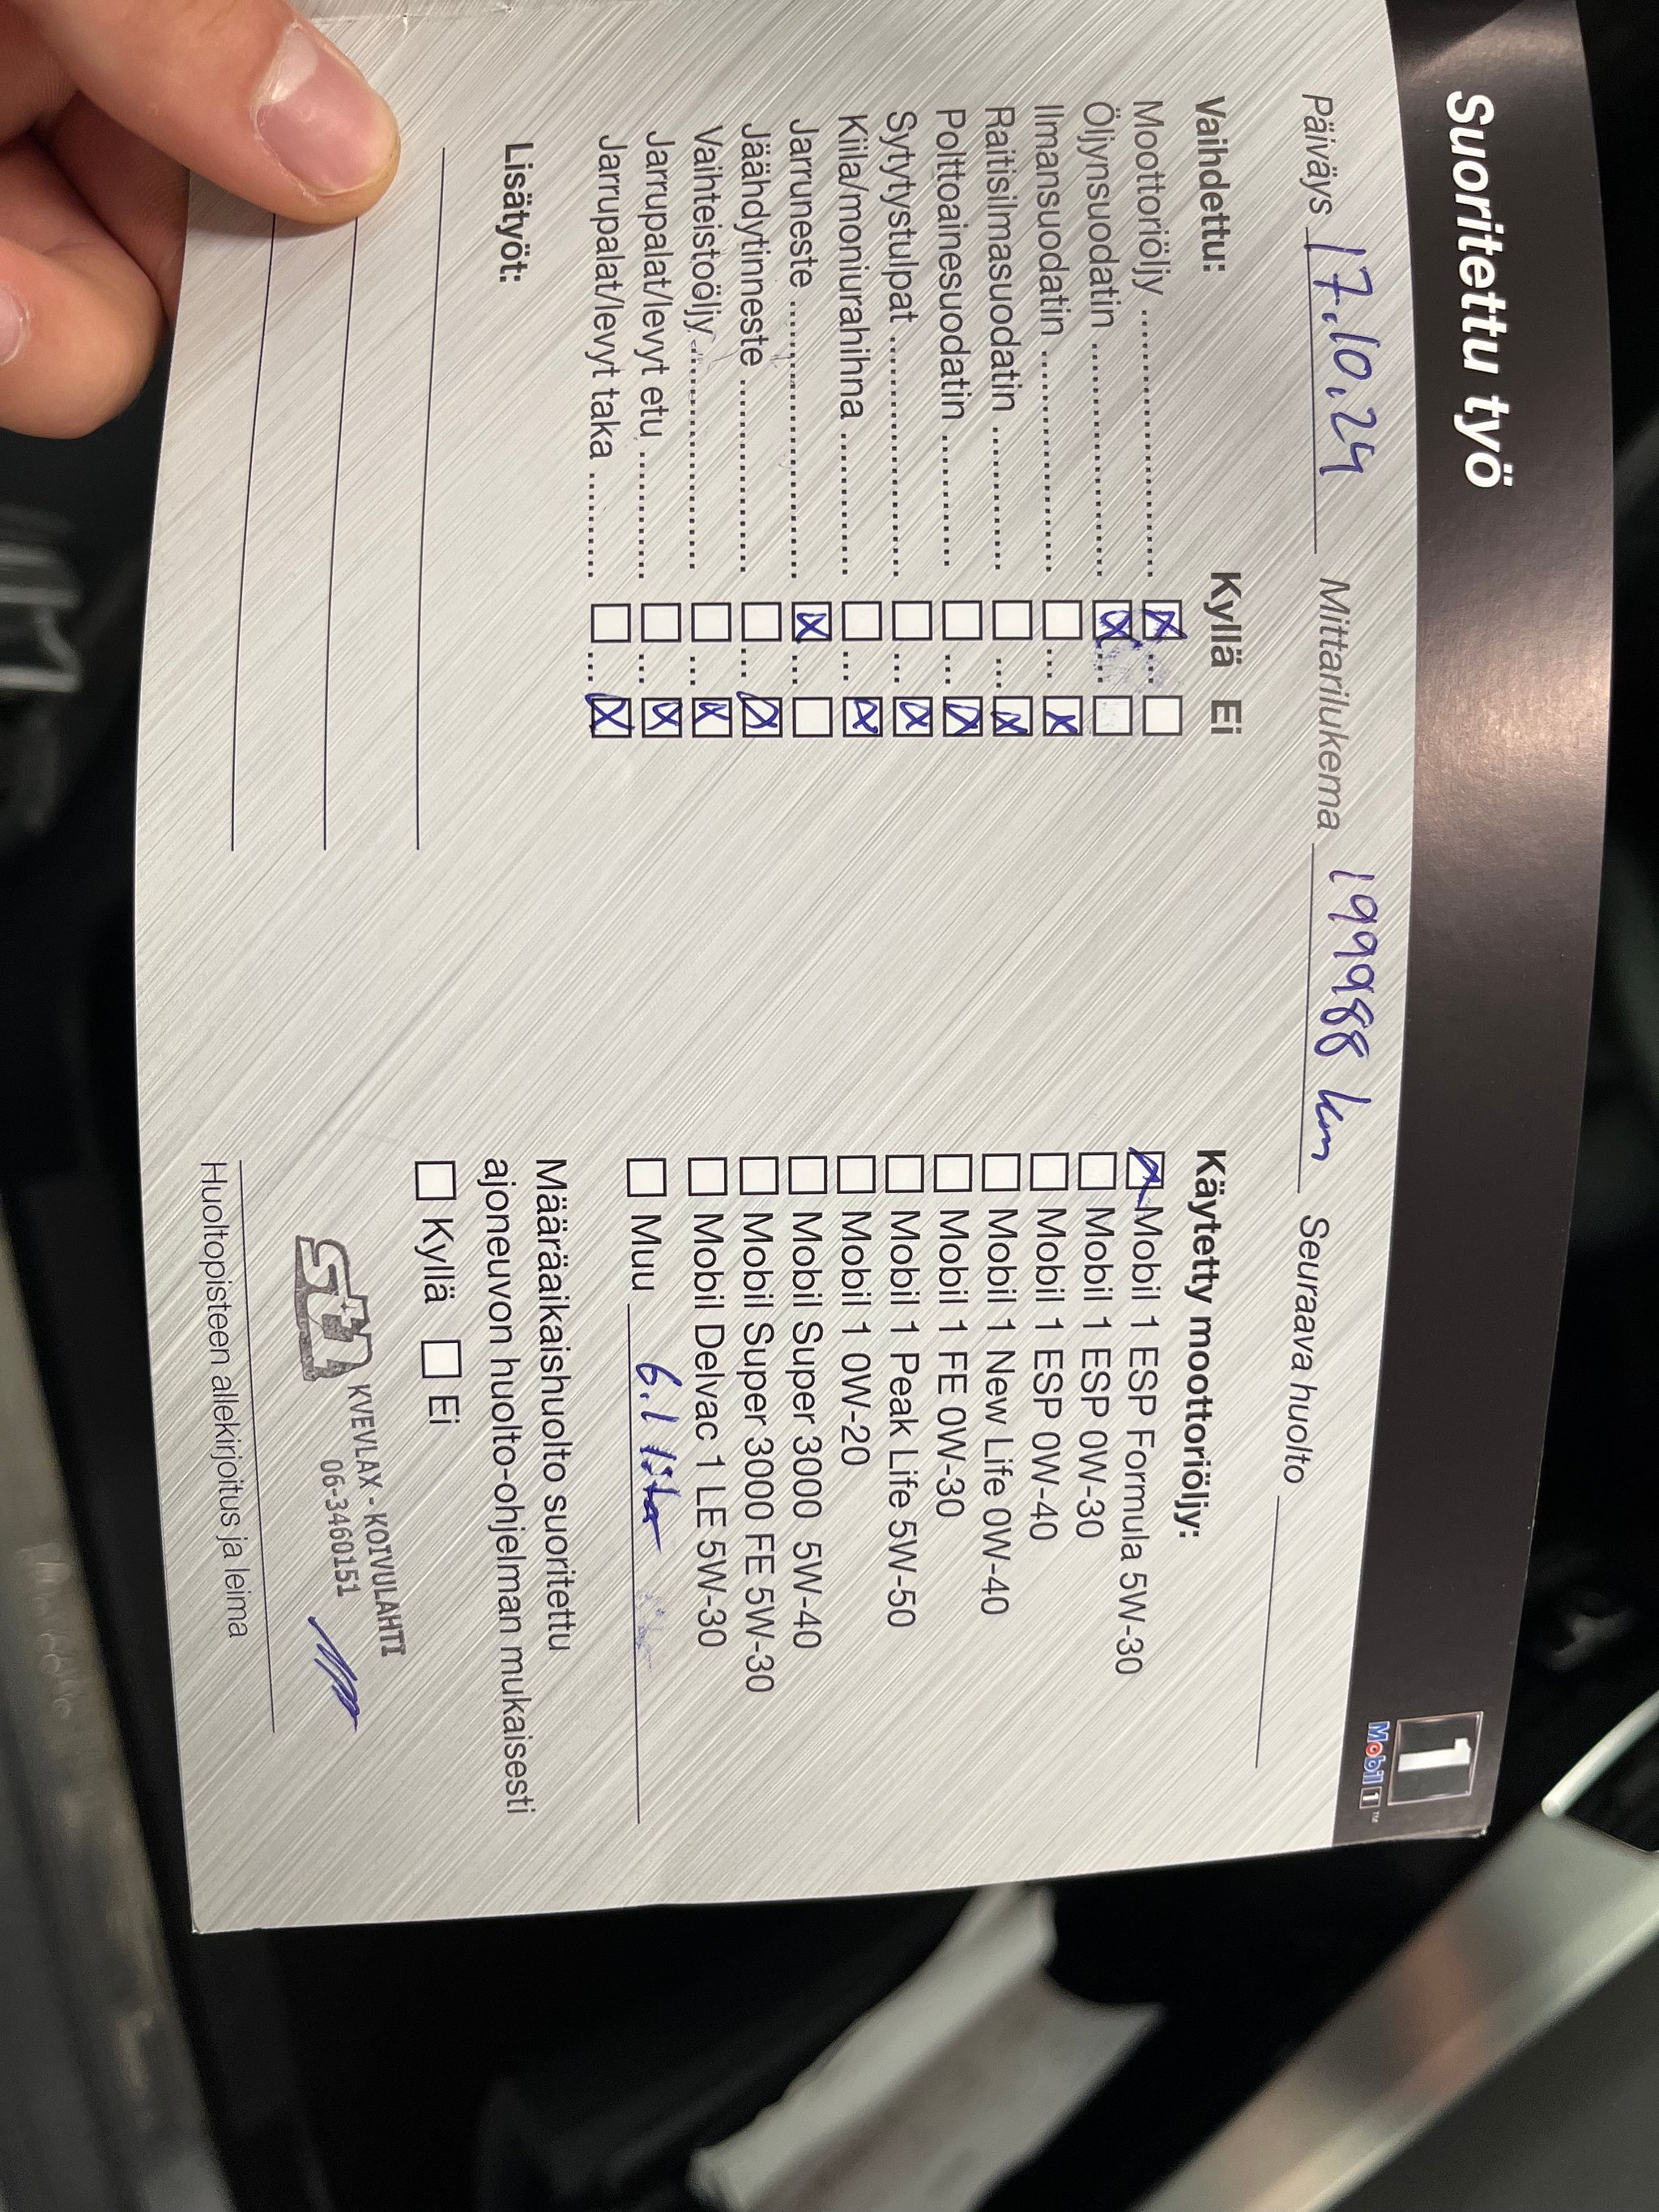 Suoritettu työ
1
Mobil 1™
Päiväys 17.10.24 Mittarilukema 199988 km Seuraava huolto
Vaihdettu: Kyllä Ei
Moottoriöljy
Öljynsuodatin
Ilmansuodatin
Raitisilmasuodatin
Polttoainesuodatin
Sytytystulpat
Kiila/moniurahihna
Jarruneste
Jäähdytinneste
Vaihteistoöljy
Jarrupalat/levyt etu
Jarrupalat/levyt taka
Lisätyöt:
Käytetty moottoriöljy:
Mobil 1 ESP Formula 5W-30
Mobil 1 ESP 0W-30
Mobil 1 ESP 0W-40
Mobil 1 New Life 0W-40
Mobil 1 FE 0W-30
Mobil 1 Peak Life 5W-50
Mobil 1 0W-20
Mobil Super 3000 5W-40
Mobil Super 3000 FE 5W-30
Mobil Delvac 1 LE 5W-30
Muu 6.1
Määräaikaishuolto suoritettu
ajoneuvon huolto-ohjelman mukaisesti
Kyllä Ei
st1 KVEVLAX - KOIVULAHTI
06-3460151
Huoltopisteen allekirjoitus ja leima